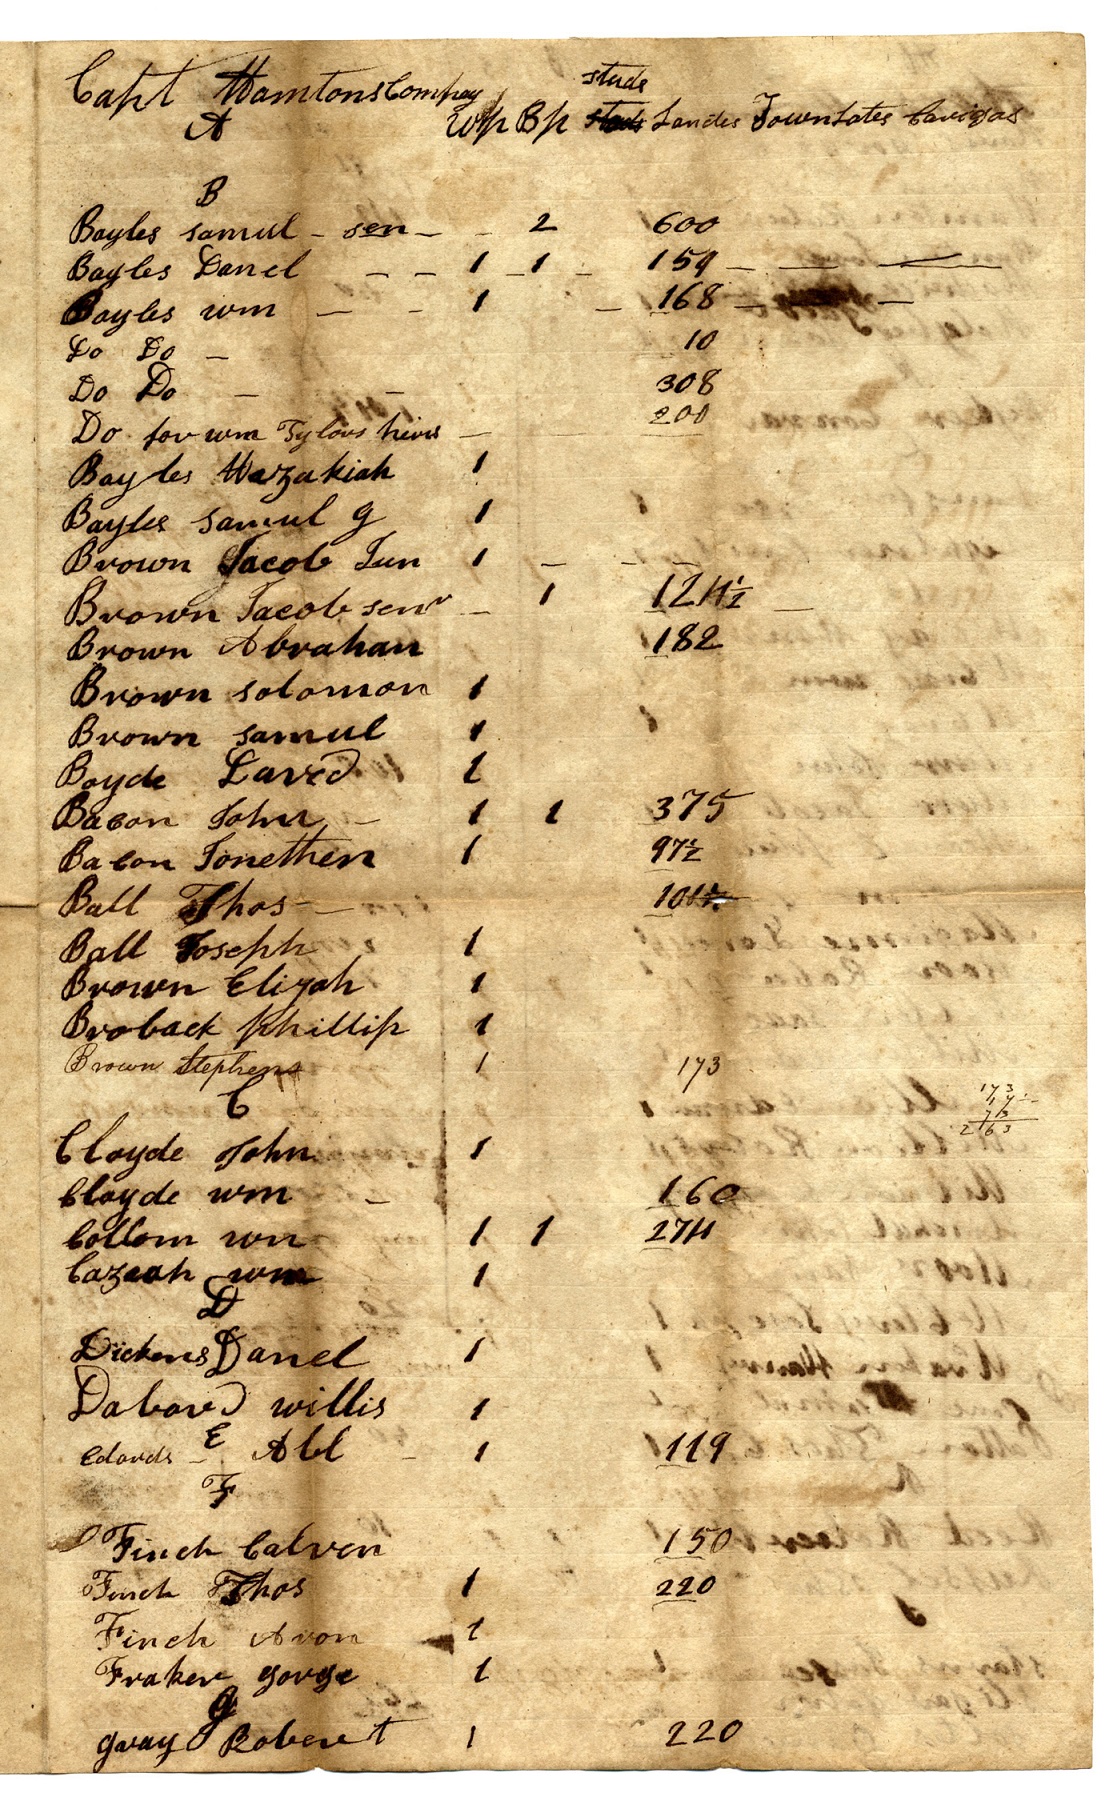 studs
Capt Hamtons Compay
A wp Bp studs Landes Town Lotes Cariges
B
Bayles samul - sen - - 2 600
Bayles Danel - - 1 - 1 - 159 - - -
Bayles wm - - 1 - 168 - -
Do Do - 10
Do Do - - 308
Do for wm Tylors heirs - 200
Bayles Hezakiah 1
Bayles samul g 1
Brown Jacob Jun 1 - - -
Brown Jacob senr - 1 124½ -
Brown Abrahan 182
Brown solomon 1
Brown samul 1
Boyde Laved 1
Bacon John - 1 1 375
Bacon Jonethen 1 97½
Ball Thos - 101
Ball Joseph 1
Brown Elizah 1
Broback phillip 1
Brown Stephens 1 173
C
173
17
73
263
Cloyde John 1
Cloyde wm - 160
Collom wn 1 1 274
Cazeah wm 1
D
Dickens Danel 1
Dabord willis 1
E
Edards - Abl - 1 119
F
Finch Calven 150
Finch Thos 1 220
Finch Avon 1
Fraker gorge 1
g
gray Robert 1 220